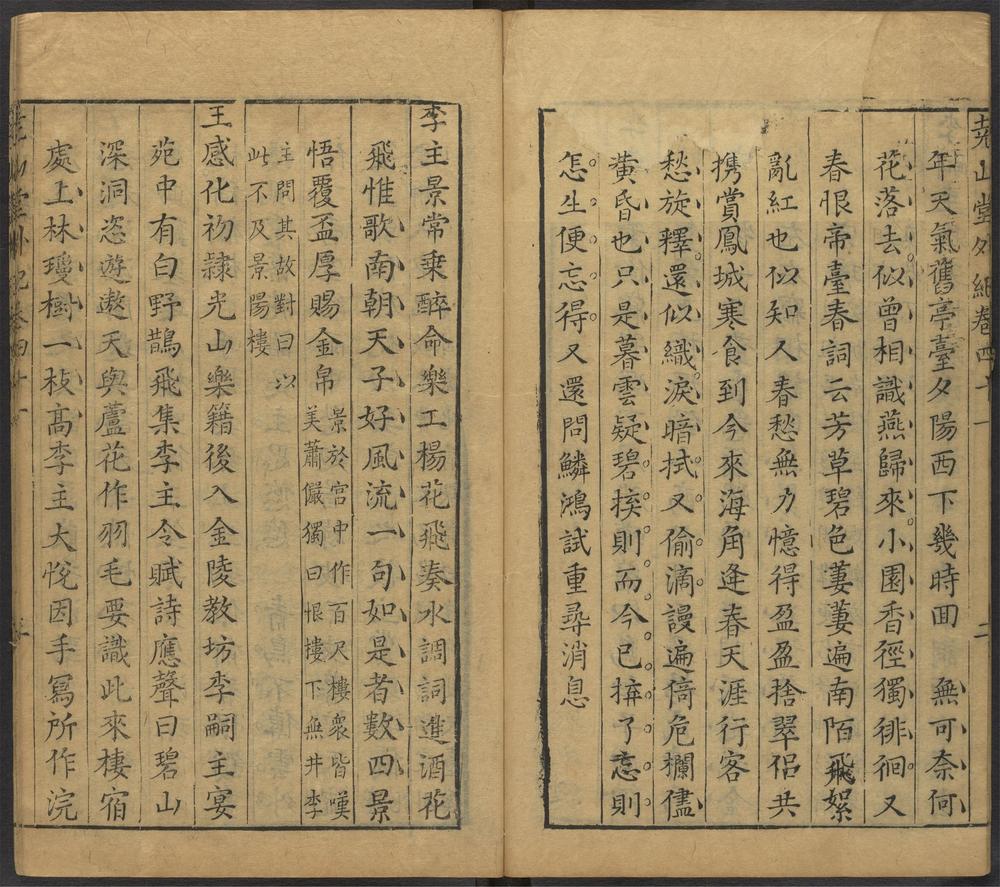 堯山堂外紀卷四十一　二
年天氣舊亭臺夕陽西下幾時囬　無可奈何
花落去似曾相識燕歸來小園香徑獨徘徊又
春恨帝臺春詞云芳草碧色萋萋遍南陌飛絮
亂紅也似知人春愁無力憶得盈盈拾翠侣共
携賞鳳城寒食到今來海角逢春天涯行客
愁旋釋還似織淚暗拭又偷滴謾遍倚危欄儘
黄昏也只是暮雲凝碧拚則而今已拚了忘則
怎生便忘得又還問鱗鴻試重尋消息
李主景常乗醉命樂工楊花飛奏水調詞進酒花
飛惟歌南朝天子好風流一句如是者數四景
悟覆盃厚賜金帛景於宫中作百尺樓衆皆嘆
美蕭儼獨曰恨樓下無井李
主問其故對曰以
此不及景陽樓
王感化初隷光山樂籍後入金陵教坊李嗣主宴
苑中有白野鵲飛集李主令賦詩應聲曰碧山
深洞恣遊遨天與蘆花作羽毛要識此來棲宿
處上林瓊樹一枝高李主大悅因手寫所作浣